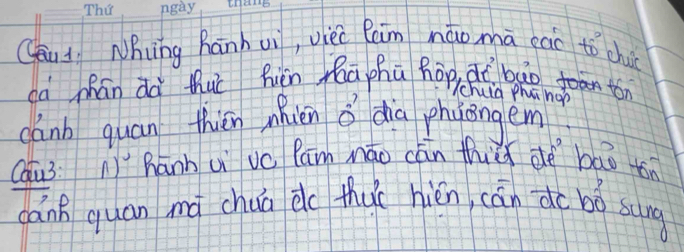 Thứ ngày tháng
Câu 1: Những hành vi, việc làm nào mà các tổ chức
cá nhân đã thực hiện là phù hợp, để bảo tồn
/chưa phù hợp
cảnh quan thiên nhiên ở địa phương em
Câu 3: N~ hành vi vc làm nào cần thiết để bảo tồn
cảnh quan mà chưa đc thực hiện, cần đc bổ sung